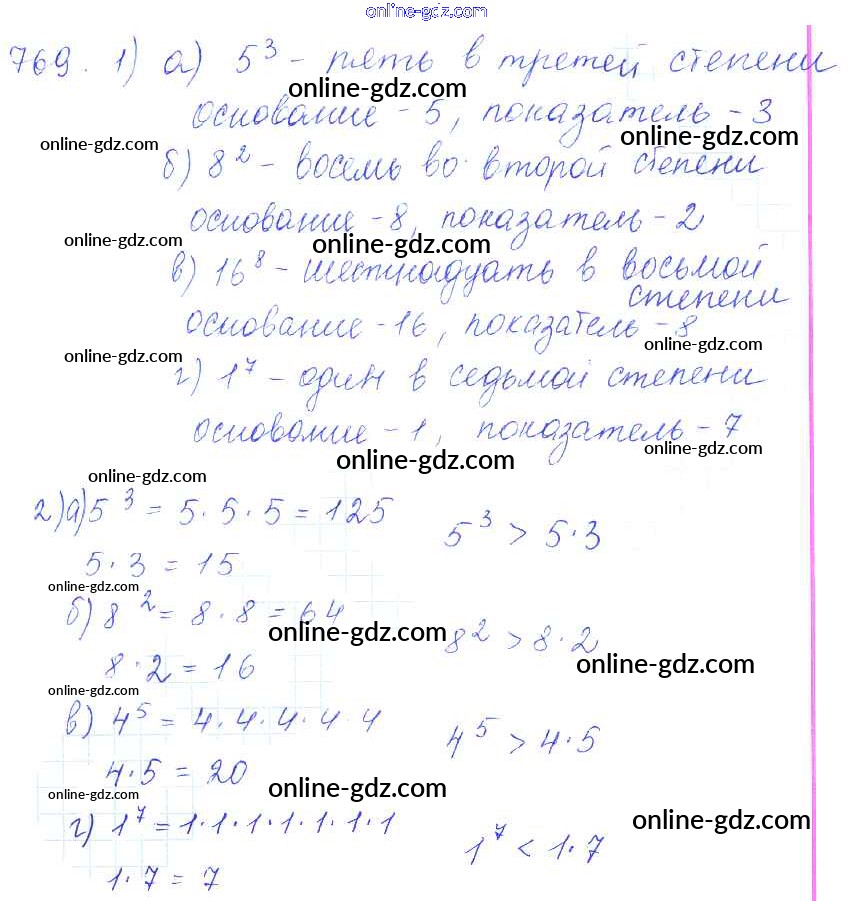 online-gdz.com
769. 1) а) 5³ - пять в третей степени
online-gdz.com
основание - 5, показатель - 3
online-gdz.com online-gdz.com
б) 8² - восемь во второй степени
основание - 8, показатель - 2
online-gdz.com online-gdz.com
в) 16⁸ - шестнадцать в восьмой
степени
основание - 16, показатель - 8
online-gdz.com online-gdz.com
г) 1⁷ - один в седьмой степени
основание - 1, показатель - 7
online-gdz.com online-gdz.com
online-gdz.com
2) а) 5³ = 5·5·5 = 125 5³ > 5·3
5·3 = 15
online-gdz.com
б) 8² = 8·8 = 64 8² > 8·2
online-gdz.com
8·2 = 16 online-gdz.com
online-gdz.com
в) 4⁵ = 4·4·4·4·4 4⁵ > 4·5
4·5 = 20
online-gdz.com online-gdz.com
г) 1⁷ = 1·1·1·1·1·1·1 1⁷ < 1·7
online-gdz.com
1·7 = 7